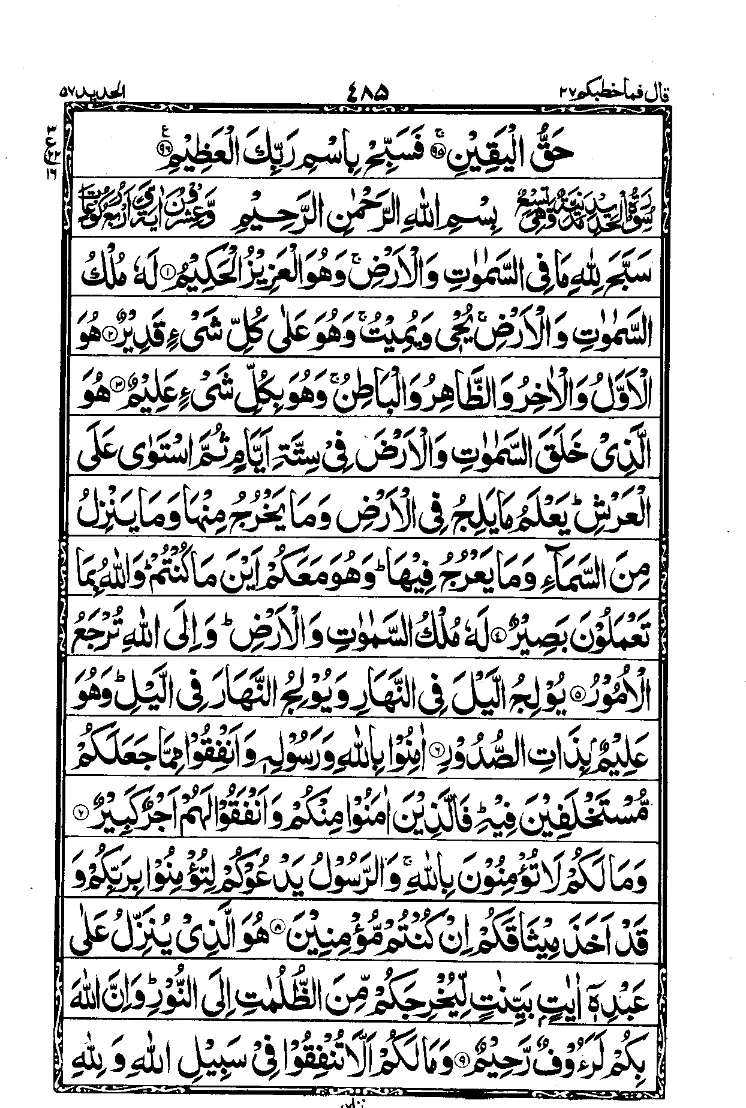 قال فما خطبکم ۲۷ ٤٨٥ الحدید ۵۷
حَقُّ الْيَقِيْنِ ۚ‏﴿۹۵﴾‏ فَسَبِّحْ بِاسْمِ رَبِّكَ الْعَظِيْمِ ‏﴿۹۶﴾‏ ع
۳
ع
۲۲
۱۶
سُوْرَةُ الْحَدِيْدِ مَدَنِيَّةٌ وَّهِىَ تِسْعٌ بِسْمِ اللّٰهِ الرَّحْمٰنِ الرَّحِيْمِ وَّعِشْرُوْنَ اٰيَةً وَّاَرْبَعُ رُكُوْعَاتٍ
سَبَّحَ لِلّٰهِ مَا فِى السَّمٰوٰتِ وَالْاَرْضِ ۚ وَهُوَ الْعَزِيْزُ الْحَكِيْمُ ‏﴿۱﴾‏ لَهٗ مُلْكُ
السَّمٰوٰتِ وَالْاَرْضِ ۚ يُحْىٖ وَيُمِيْتُ ۚ وَهُوَ عَلٰى كُلِّ شَىْءٍ قَدِيْرٌ ‏﴿۲﴾‏ هُوَ
الْاَوَّلُ وَالْاٰخِرُ وَالظَّاهِرُ وَالْبَاطِنُ ۚ وَهُوَ بِكُلِّ شَىْءٍ عَلِيْمٌ ‏﴿۳﴾‏ هُوَ
الَّذِىْ خَلَقَ السَّمٰوٰتِ وَالْاَرْضَ فِىْ سِتَّةِ اَيَّامٍ ثُمَّ اسْتَوٰى عَلَى
الْعَرْشِ ؕ يَعْلَمُ مَا يَلِجُ فِى الْاَرْضِ وَمَا يَخْرُجُ مِنْهَا وَمَا يَنْزِلُ
مِنَ السَّمَآءِ وَمَا يَعْرُجُ فِيْهَا ؕ وَهُوَ مَعَكُمْ اَيْنَ مَا كُنْتُمْ ؕ وَاللّٰهُ بِمَا
تَعْمَلُوْنَ بَصِيْرٌ ‏﴿۴﴾‏ لَهٗ مُلْكُ السَّمٰوٰتِ وَالْاَرْضِ ؕ وَاِلَى اللّٰهِ تُرْجَعُ
الْاُمُوْرُ ‏﴿۵﴾‏ يُوْلِجُ الَّيْلَ فِى النَّهَارِ وَيُوْلِجُ النَّهَارَ فِى الَّيْلِ ؕ وَهُوَ
عَلِيْمٌۢ بِذَاتِ الصُّدُوْرِ ‏﴿۶﴾‏ اٰمِنُوْا بِاللّٰهِ وَرَسُوْلِهٖ وَاَنْفِقُوْا مِمَّا جَعَلَكُمْ
مُّسْتَخْلَفِيْنَ فِيْهِ ؕ فَالَّذِيْنَ اٰمَنُوْا مِنْكُمْ وَاَنْفَقُوْا لَهُمْ اَجْرٌ كَبِيْرٌ ‏﴿۷﴾‏
وَمَا لَكُمْ لَا تُؤْمِنُوْنَ بِاللّٰهِ ۚ وَالرَّسُوْلُ يَدْعُوْكُمْ لِتُؤْمِنُوْا بِرَبِّكُمْ وَ
قَدْ اَخَذَ مِيْثَاقَكُمْ اِنْ كُنْتُمْ مُّؤْمِنِيْنَ ‏﴿۸﴾‏ هُوَ الَّذِىْ يُنَزِّلُ عَلٰى
عَبْدِهٖۤ اٰيٰتٍۭ بَيِّنٰتٍ لِّيُخْرِجَكُمْ مِّنَ الظُّلُمٰتِ اِلَى النُّوْرِ ؕ وَاِنَّ اللّٰهَ
بِكُمْ لَرَءُوْفٌ رَّحِيْمٌ ‏﴿۹﴾‏ وَمَا لَكُمْ اَلَّا تُنْفِقُوْا فِىْ سَبِيْلِ اللّٰهِ وَلِلّٰهِ